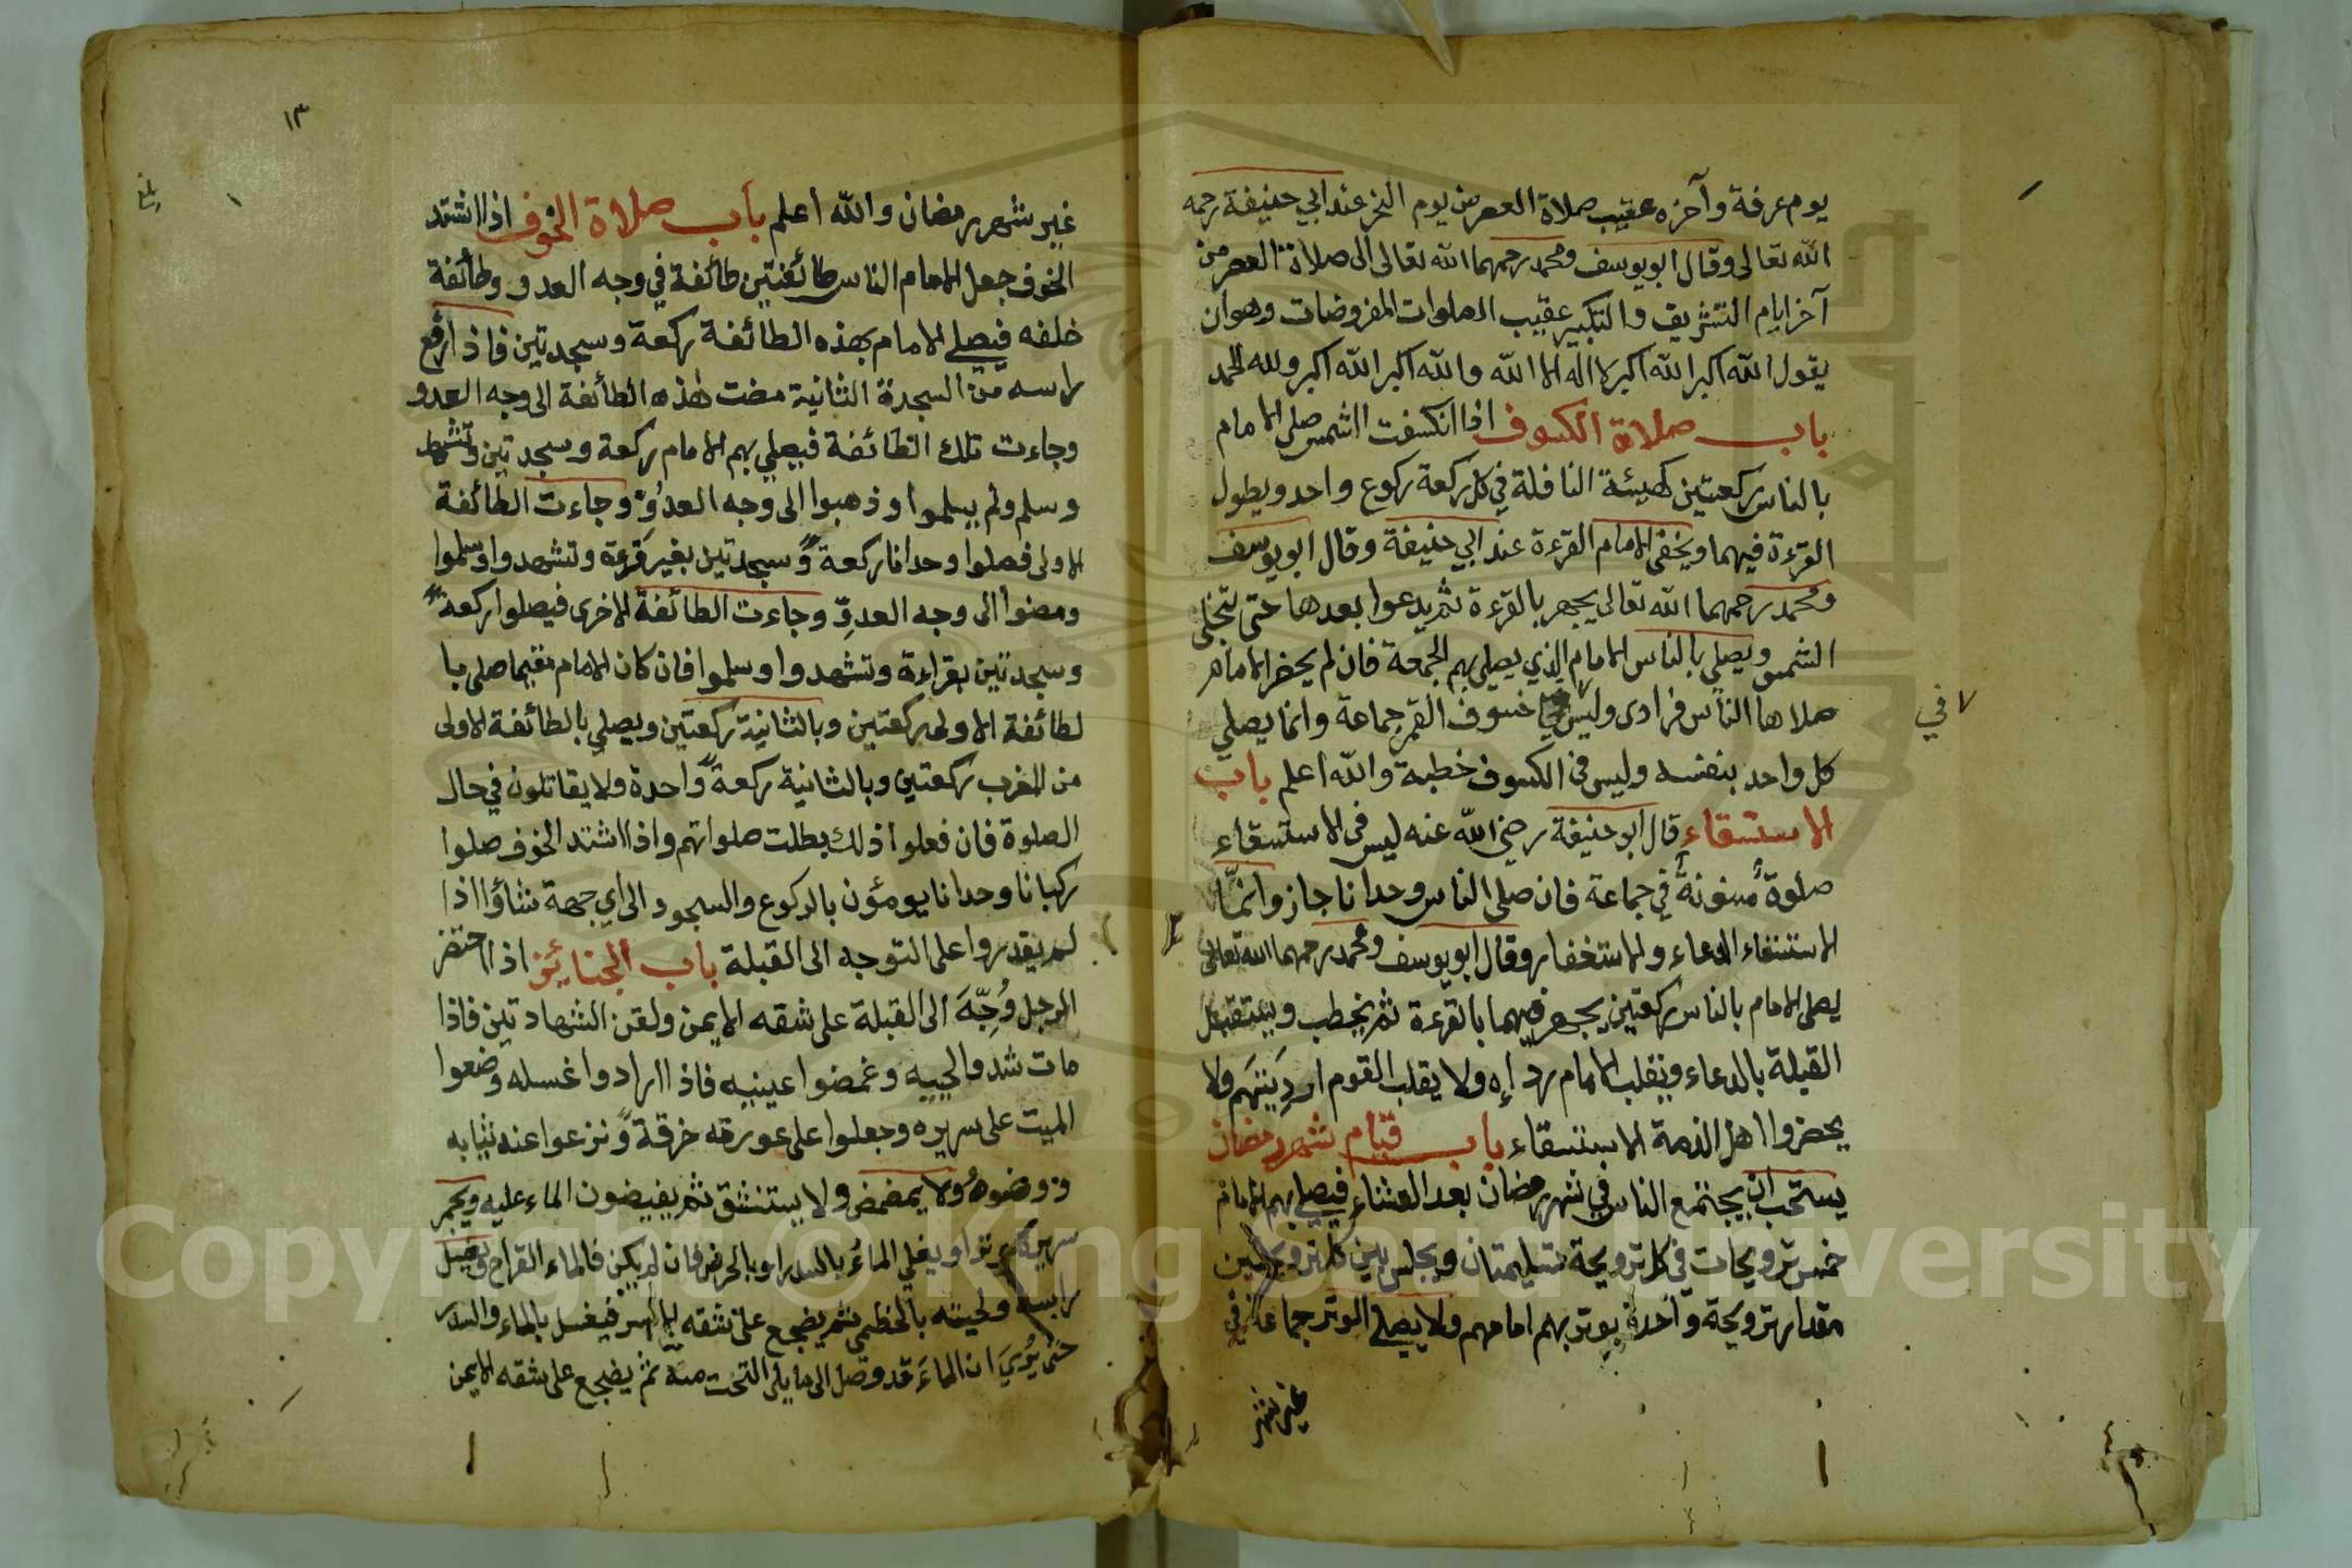 يوم عرفة وآخره عقيب صلاة العصر من يوم النحر عند ابي حنيفة رحمه
الله تعالى وقال ابو يوسف ومحمد رحمهما الله تعالى الى صلاة العصر من
آخر ايام التشريق والتكبير عقيب الصلوات المفروضات وهو ان
يقول الله اكبر الله اكبر لا اله الا الله والله اكبر الله اكبر ولله الحمد
باب صلاة الكسوف اذا انكسفت الشمس صلى الامام
بالناس ركعتين كهيئة النافلة في كل ركعة ركوع واحد ويطول
القرءة فيهما ويخفى الامام القرءة عند ابي حنيفة وقال ابو يوسف
ومحمد رحمهما الله تعالى يجهر بالقرءة ثم يدعوا بعدها حتى تنجلى
الشمس ويصلي بالناس الامام الذي يصلي بهم الجمعة فان لم يحضر الامام
صلاها الناس فرادى وليس خسوف القمر جماعة وانما يصلي
في
كل واحد بنفسه وليس في الكسوف خطبة والله اعلم باب
الاستسقاء قال ابو حنيفة رضي الله عنه ليس في الاستسقاء
صلوة مسنونة في جماعة فان صلى الناس وحدانا جاز وانما
الاستسقاء الدعاء والاستغفار وقال ابو يوسف ومحمد رحمهما الله تعالى
يصلى الامام بالناس ركعتين يجهر فيهما بالقرءة ثم يخطب ويستقبل
القبلة بالدعاء ويقلب الامام رداءه ولا يقلب القوم ارديتهم ولا
يحضروا اهل الذمة الاستسقاء باب قيام شهر رمضان
يستحب ان يجتمع الناس في شهر رمضان بعد العشاء فيصلي بهم الامام
خمس ترويحات في كل ترويحة تسليمتان ويجلس بين كل ترويحتين
مقدار ترويحة واحدة يوتر بهم امامهم ولا يصلي الوتر جماعة في
غير شهر
١٣
بلغ
غير شهر رمضان والله اعلم باب صلاة الخوف اذا اشتد
الخوف جعل الامام الناس طائفتين طائفة في وجه العدو وطائفة
خلفه فيصلي الامام بهذه الطائفة ركعة وسجدتين فاذا رفع
راسه من السجدة الثانية مضت هذه الطائفة الى وجه العدو
وجاءت تلك الطائفة فيصلي بهم الامام ركعة وسجدتين وتشهد
وسلم ولم يسلموا وذهبوا الى وجه العدو وجاءت الطائفة
الاولى فصلوا وحدانا ركعة وسجدتين بغير قرءة وتشهدوا وسلموا
ومضوا الى وجه العدو وجاءت الطائفة الاخرى فيصلوا ركعة
وسجدتين بقراءة وتشهدوا وسلموا فان كان الامام مقيما صلى با
لطائفة الاولى ركعتين وبالثانية ركعتين ويصلي بالطائفة الاولى
من المغرب ركعتين وبالثانية ركعة واحدة ولا يقاتلون في حال
الصلوة فان فعلوا ذلك بطلت صلواتهم واذا اشتد الخوف صلوا
ركبانا وحدانا يومؤن بالركوع والسجود الى اي جهة شاؤا اذا
لم يقدروا على التوجه الى القبلة باب الجنائز اذا احتضر
الرجل وُجِّهَ الى القبلة على شقه الايمن ولقن الشهادتين فاذا
مات شدوا لحييه وغمضوا عينيه فاذا ارادوا غسله وضعوا
الميت على سريره وجعلوا على عورته خرقة ونزعوا عنه ثيابه
ووضوه ولا يمضمض ولا يستنشق ثم يفيضون الماء عليه ويجمر
سريره وترا ويغلي الماء بالسدر او بالحرض فان لم يكن فالماء القراح ويغسل
راسه ولحيته بالخطمي ثم يضجع على شقه الايسر فيغسل بالماء والسدر
حتى يُرى ان الماء قد وصل الى ما يلى التخت منه ثم يضجع على شقه الايمن
Copyright © King Saud University